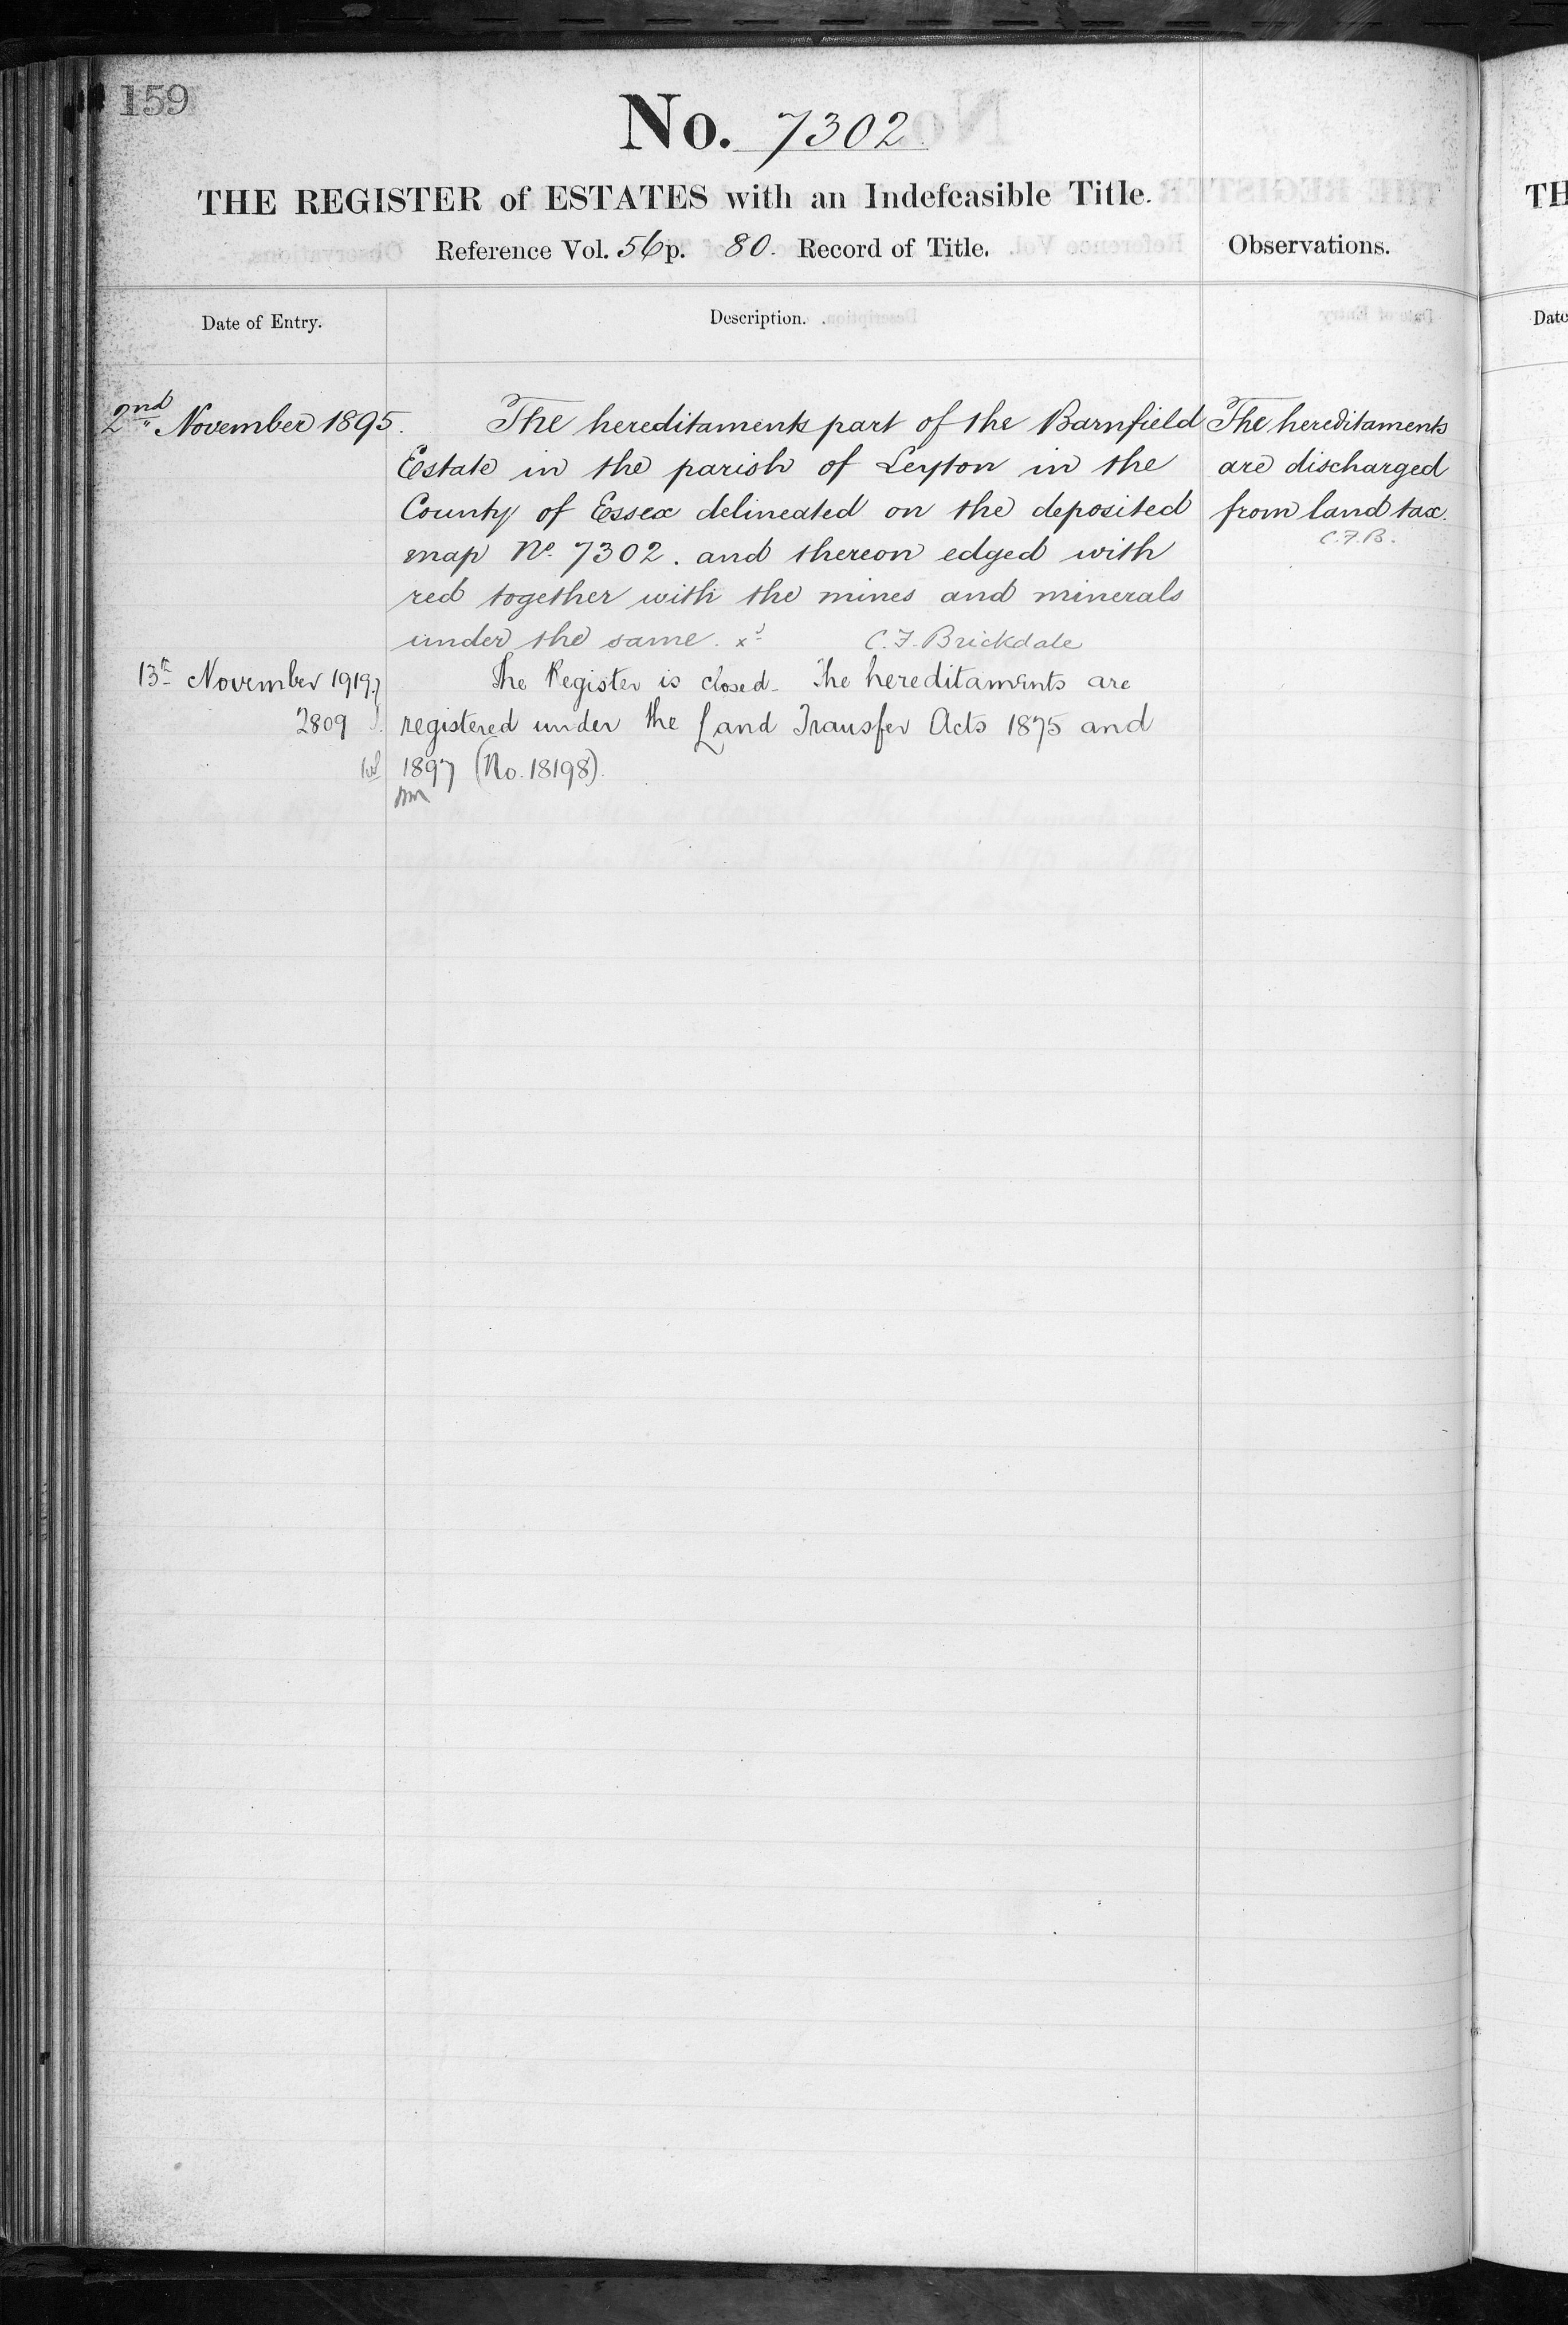 159
No. 7302
THE REGISTER of ESTATES with an Indefeasible Title.
Reference Vol. 56 p. 80. Record of Title.
Observations.
Date of Entry.
Description.
2nd November 1895.
The hereditaments part of the Barnfield
Estate in the parish of Leyton in the
County of Essex delineated on the deposited
map No. 7302. and thereon edged with
red together with the mines and minerals
under the same. C. F. Brickdale
The hereditaments
are discharged
from land tax.
C.F.B.
13th November 1919
2809
The Register is closed. The hereditaments are
registered under the Land Transfer Acts 1875 and
1897 (No. 18198).
TH
Date